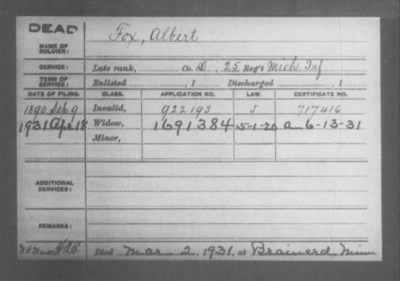 DEAD
NAME OF SOLDIER: Fox, Albert
SERVICE: Late rank, Co. D, 25 Reg't Mich. Inf
TERM OF SERVICE: Enlisted , 1 Discharged , 1
DATE OF FILING. CLASS. APPLICATION NO. LAW. CERTIFICATE NO.
1890 Invalid, 922195 J 717416
1931 Apr 18 Widow, 1691384 5-1-20 a 6-13-31
Minor,
ADDITIONAL SERVICES:
REMARKS:
Died Mar 2, 1931, at Brainerd, Minn